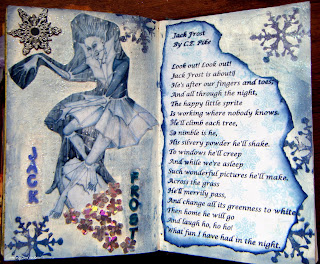 JACK
FROST
Jack Frost
By C.E. Pike
Look out! Look out!
Jack Frost is about!
He's after our fingers and toes,
And all through the night,
The happy little sprite
Is working where nobody knows.
He'll climb each tree,
So nimble is he,
His silvery powder he'll shake.
To windows he'll creep
And while we're asleep
Such wonderful pictures he'll make.
Across the grass
He'll merrily pass,
And change all its greenness to white
Then home he will go
And laugh ho, ho ho!
What fun I have had in the night.